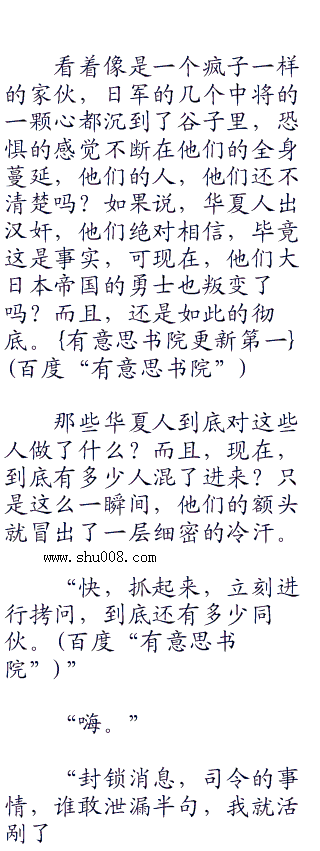 看着像是一个疯子一样
的家伙，日军的几个中将的
一颗心都沉到了谷子里，恐
惧的感觉不断在他们的全身
蔓延，他们的人，他们还不
清楚吗？如果说，华夏人出
汉奸，他们绝对相信，毕竟
这是事实，可现在，他们大
日本帝国的勇士也叛变了
吗？而且，还是如此的彻
底。{有意思书院更新第一}
(百度“有意思书院”)
那些华夏人到底对这些
人做了什么？而且，现在，
到底有多少人混了进来？只
是这么一瞬间，他们的额头
就冒出了一层细密的冷汗。
www.shu008.com
“快，抓起来，立刻进
行拷问，到底还有多少同
伙。(百度“有意思书
院”)”
“嗨。”
“封锁消息，司令的事
情，谁敢泄漏半句，我就活
剐了